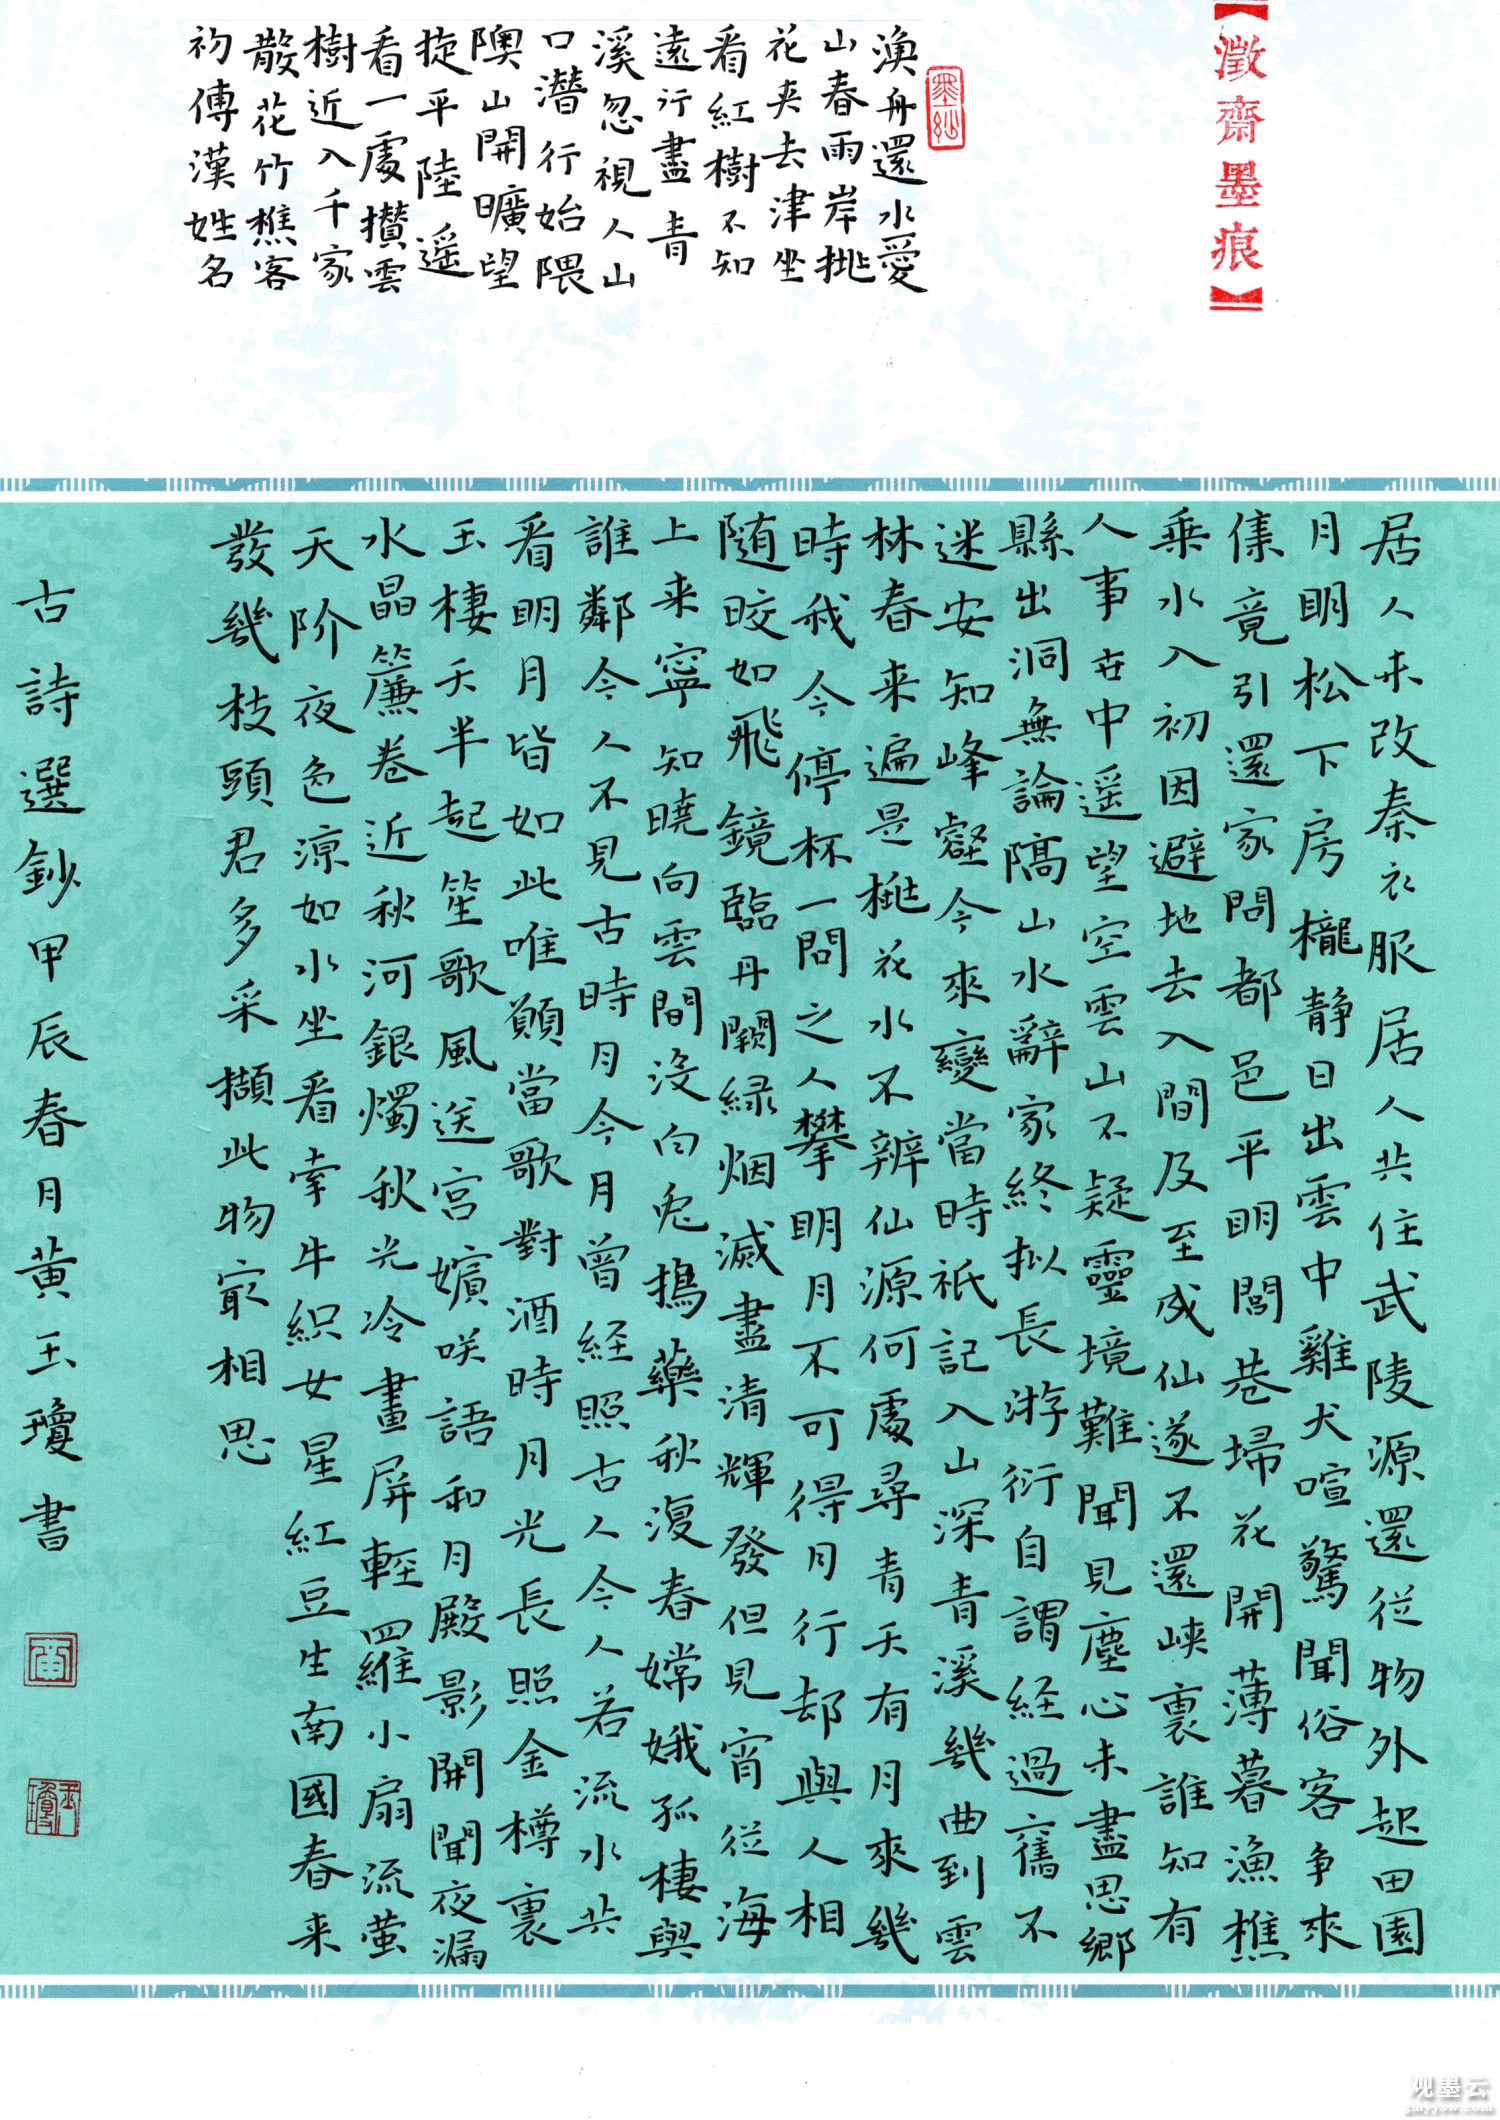 【澂齋墨痕】
漁舟還水愛
山春雨岸桃
花夹去津坐
看紅樹不知
遠行盡青
溪忽視人山
口潛行始隈
隩山開曠望
旋平陸遥
看一處攢雲
樹近入千家
散花竹樵客
初傳漢姓名
居人未改秦衣服居人共住武陵源還從物外起田園
月明松下房櫳静日出雲中雞犬喧驚聞俗客争來
集竟引還家問都邑平明閭巷掃花開薄暮漁樵
乘水入初因避地去人間及至成仙遂不還峡裏誰知有
人事世中遥望空雲山不疑靈境難聞見塵心未盡思鄉
縣出洞無論隔山水辭家終拟長游衍自謂经過舊不
迷安知峰壑今來變當時祇記入山深青溪幾曲到雲
林春来遍是桃花水不辨仙源何處尋青天有月來幾
時我今停杯一問之人攀明月不可得月行却與人相
隨皎如飛鏡臨丹闕緑烟滅盡清輝發但見宵從海
上来寧知曉向雲間没白兔搗藥秋復春嫦娥孤棲與
誰鄰今人不見古時月今月曾经照古人今人若流水共
看明月皆如此唯願當歌對酒時月光長照金樽裏
玉樓天半起笙歌風送宫嬪咲語和月殿影開聞夜漏
水晶簾卷近秋河銀燭秋光冷畫屏輕羅小扇流萤
天阶夜色凉如水坐看牽牛织女星紅豆生南國春来
發幾枝頭君多采擷此物最相思
古詩選鈔甲辰春月黄玉瓊書
黄
玉瓊
观墨云
gmyyow.com